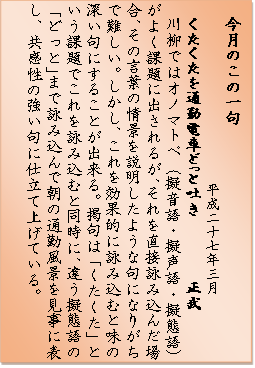 今月のこの一句
平成二十七年三月
くたくたを通勤電車どっと吐き 正武
川柳ではオノマトペ（擬音語・擬声語・擬態語）
がよく課題に出されるが、それを直接詠み込んだ場
合、その言葉の情景を説明したような句になりがち
で難しい。しかし、これを効果的に詠み込むと味の
深い句にすることが出来る。掲句は「くたくた」と
いう課題でこれを詠み込むと同時に、違う擬態語の
「どっと」まで詠み込んで朝の通勤風景を見事に表
し、共感性の強い句に仕立て上げている。